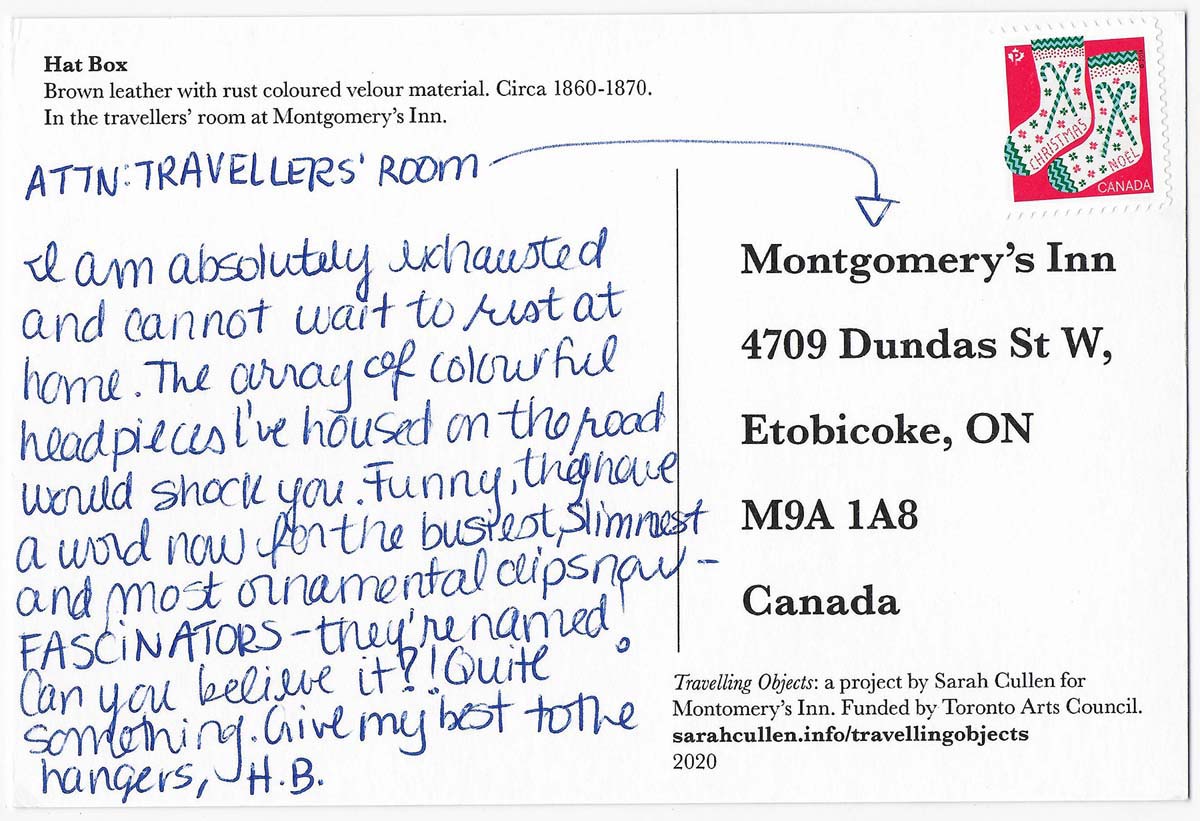 Hat Box
Brown leather with rust coloured velour material. Circa 1860-1870.
In the travellers' room at Montgomery's Inn.
ATTN: TRAVELLERS' ROOM
I am absolutely exhausted
and cannot wait to rest at
home. The array of colourful
headpieces I've housed on the road
would shock you. Funny, they have
a word now for the busiest, slimmest
and most ornamental clips now –
FASCINATORS – they're named!
Can you believe it?! Quite
something. Give my best to the
hangers, H.B.
CHRISTMAS
NOEL
CANADA
P
Montgomery's Inn
4709 Dundas St W,
Etobicoke, ON
M9A 1A8
Canada
Travelling Objects: a project by Sarah Cullen for
Montomery's Inn. Funded by Toronto Arts Council.
sarahcullen.info/travellingobjects
2020